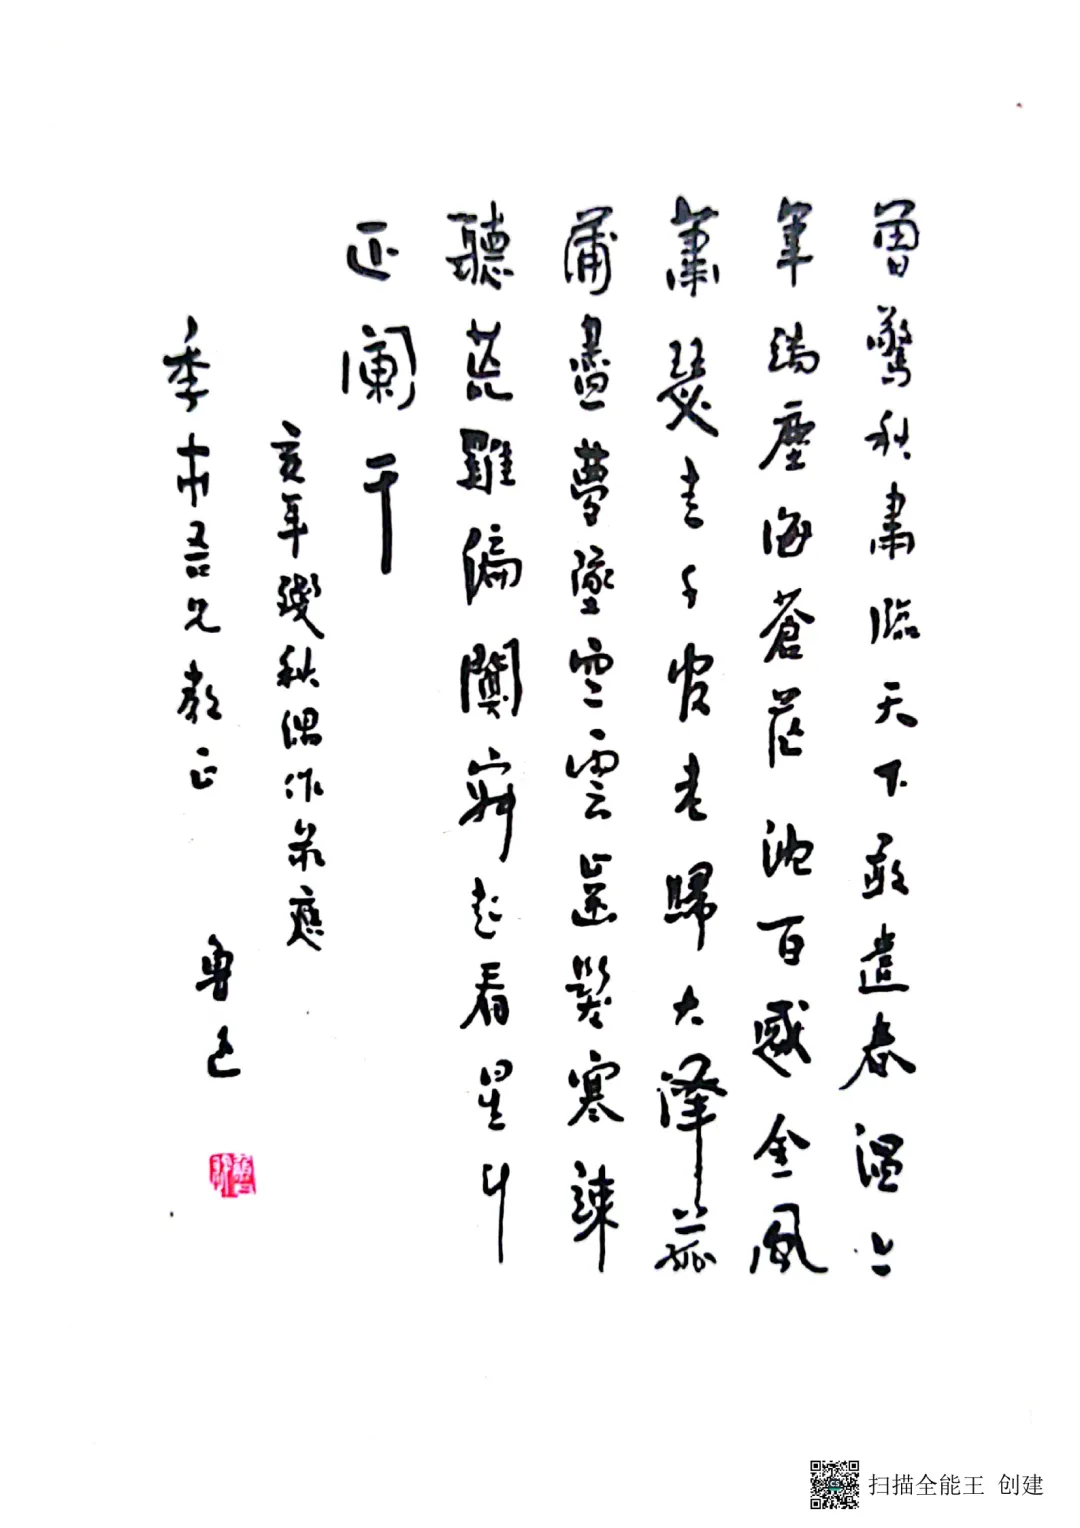 曾驚秋肅臨天下敢遣春溫上
筆端塵海蒼茫沈百感金風
蕭瑟走千官老歸大澤菰
蒲盡夢墜空雲齒髮寒竦
聽荒雞偏闃寂起看星斗
正闌干
亥年殘秋偶作錄應
季市吾兄教正
魯迅
扫描全能王 创建